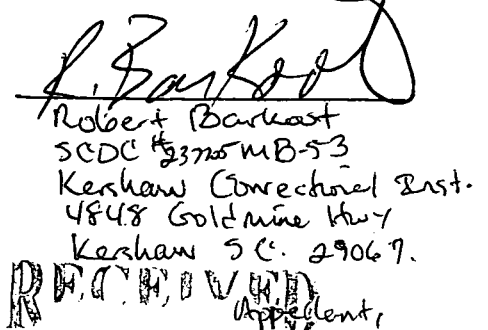 Robert Barkoot
SCDC # MB-53
Kershaw Correctional Inst.
4848 Goldmine Hwy
Kershaw S.C. 29067.
RECEIVED
Appellent,